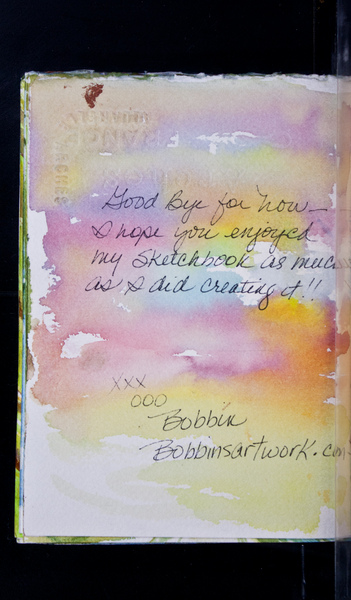 Good Bye for now—
I hope you enjoyed
my Sketchbook as much
as I did creating it!!
XXX
OOO
Bobbin
Bobbinsartwork.com